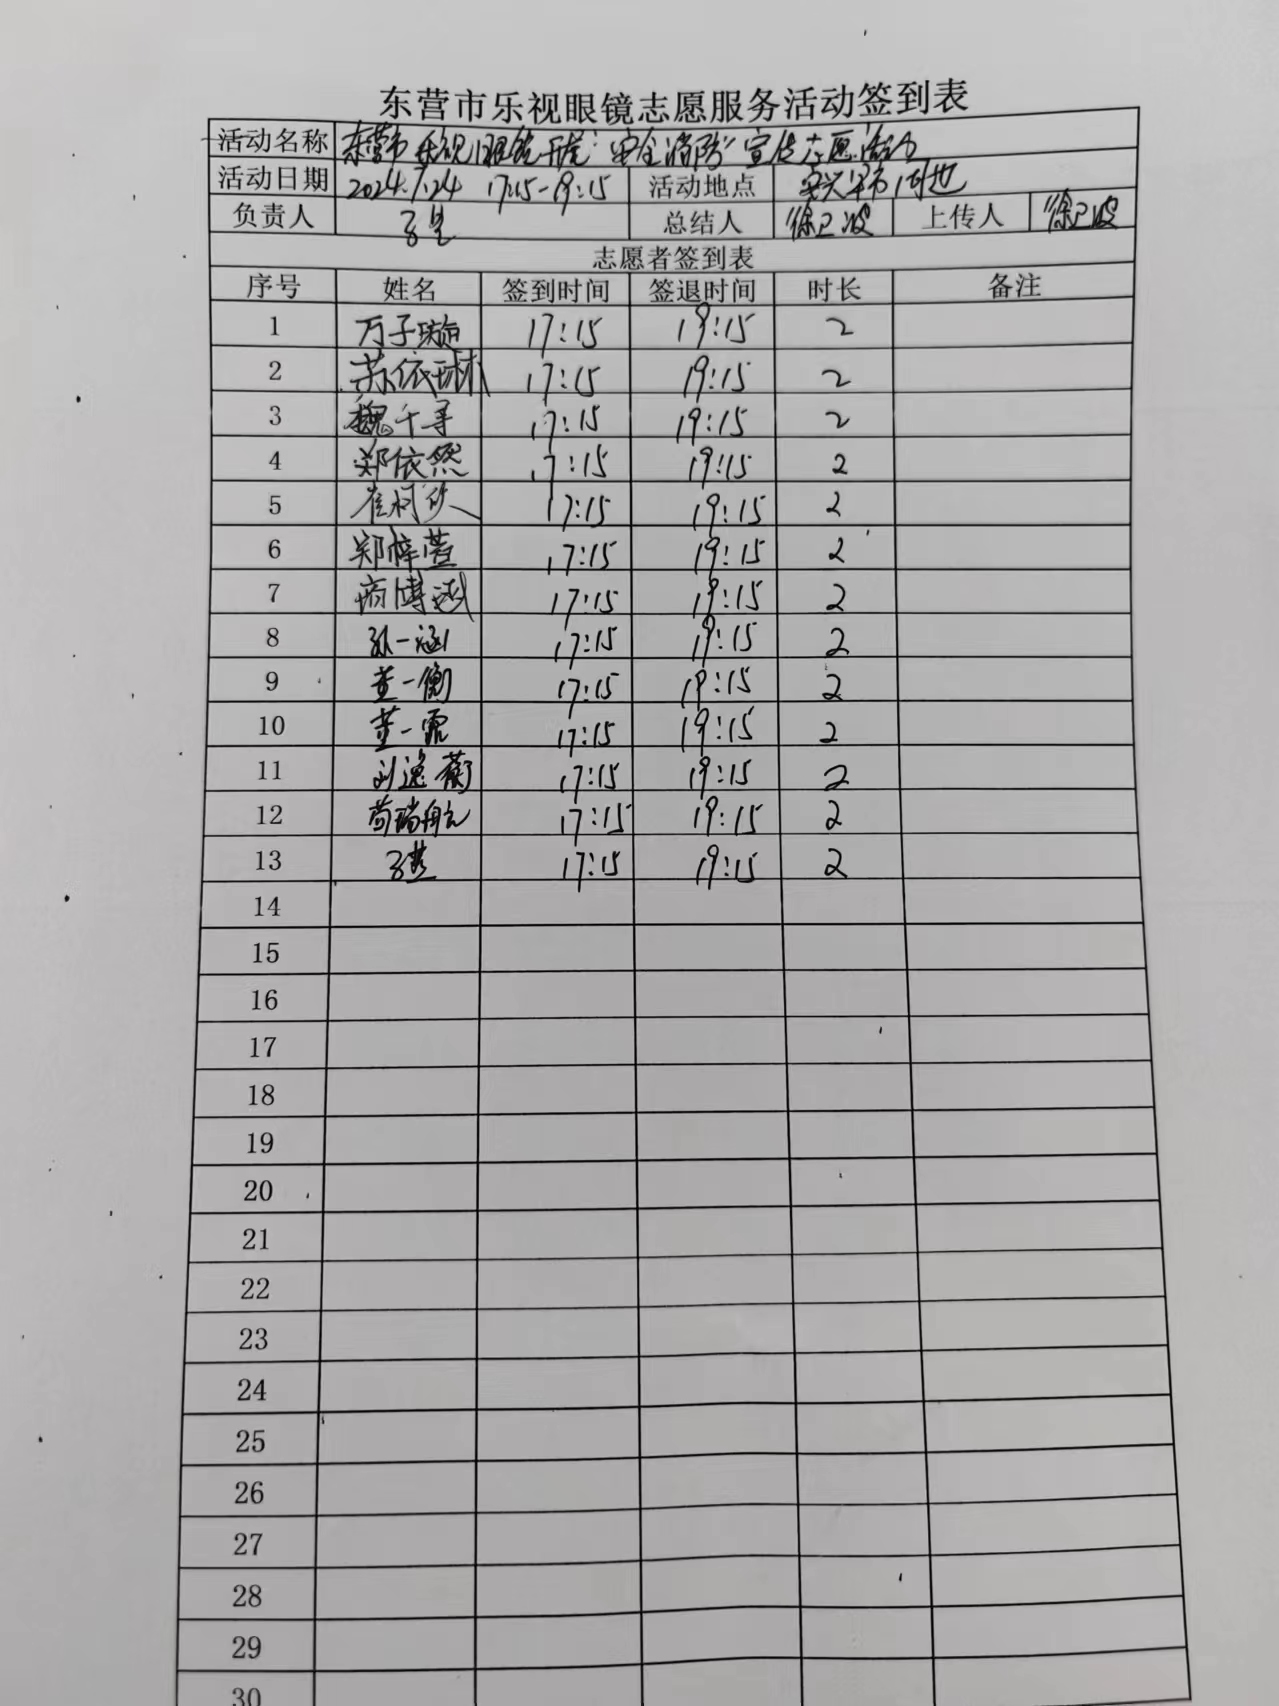 东营市乐视眼镜志愿服务活动签到表
活动名称 东营市乐视眼镜开展"安全消防"宣传志愿活动
活动日期 2024.7.24 17:15-19:15 活动地点
负责人 总结人 徐卫波 上传人 徐卫波
志愿者签到表
序号 姓名 签到时间 签退时间 时长 备注
1 万子璇 17:15 19:15 2
2 苏依琳 17:15 19:15 2
3 魏千寻 17:15 19:15 2
4 郑依然 17:15 19:15 2
5 17:15 19:15 2
6 郑梓萱 17:15 19:15 2
7 17:15 19:15 2
8 孙一涵 17:15 19:15 2
9 董一衡 17:15 19:15 2
10 董一霏 17:15 19:15 2
11 刘逸蘅 17:15 19:15 2
12 苟瑞航 17:15 19:15 2
13 17:15 19:15 2
14
15
16
17
18
19
20
21
22
23
24
25
26
27
28
29
30